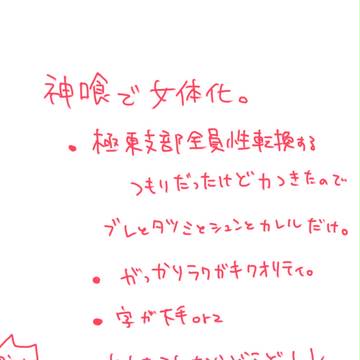 神喰で女体化。
・極東支部全員性転換する
つもりだったけど力つきたので
ブレとダツミとシュンとカレルだけ。
・がっかりラクガキクオリティ。
・字が下手orz